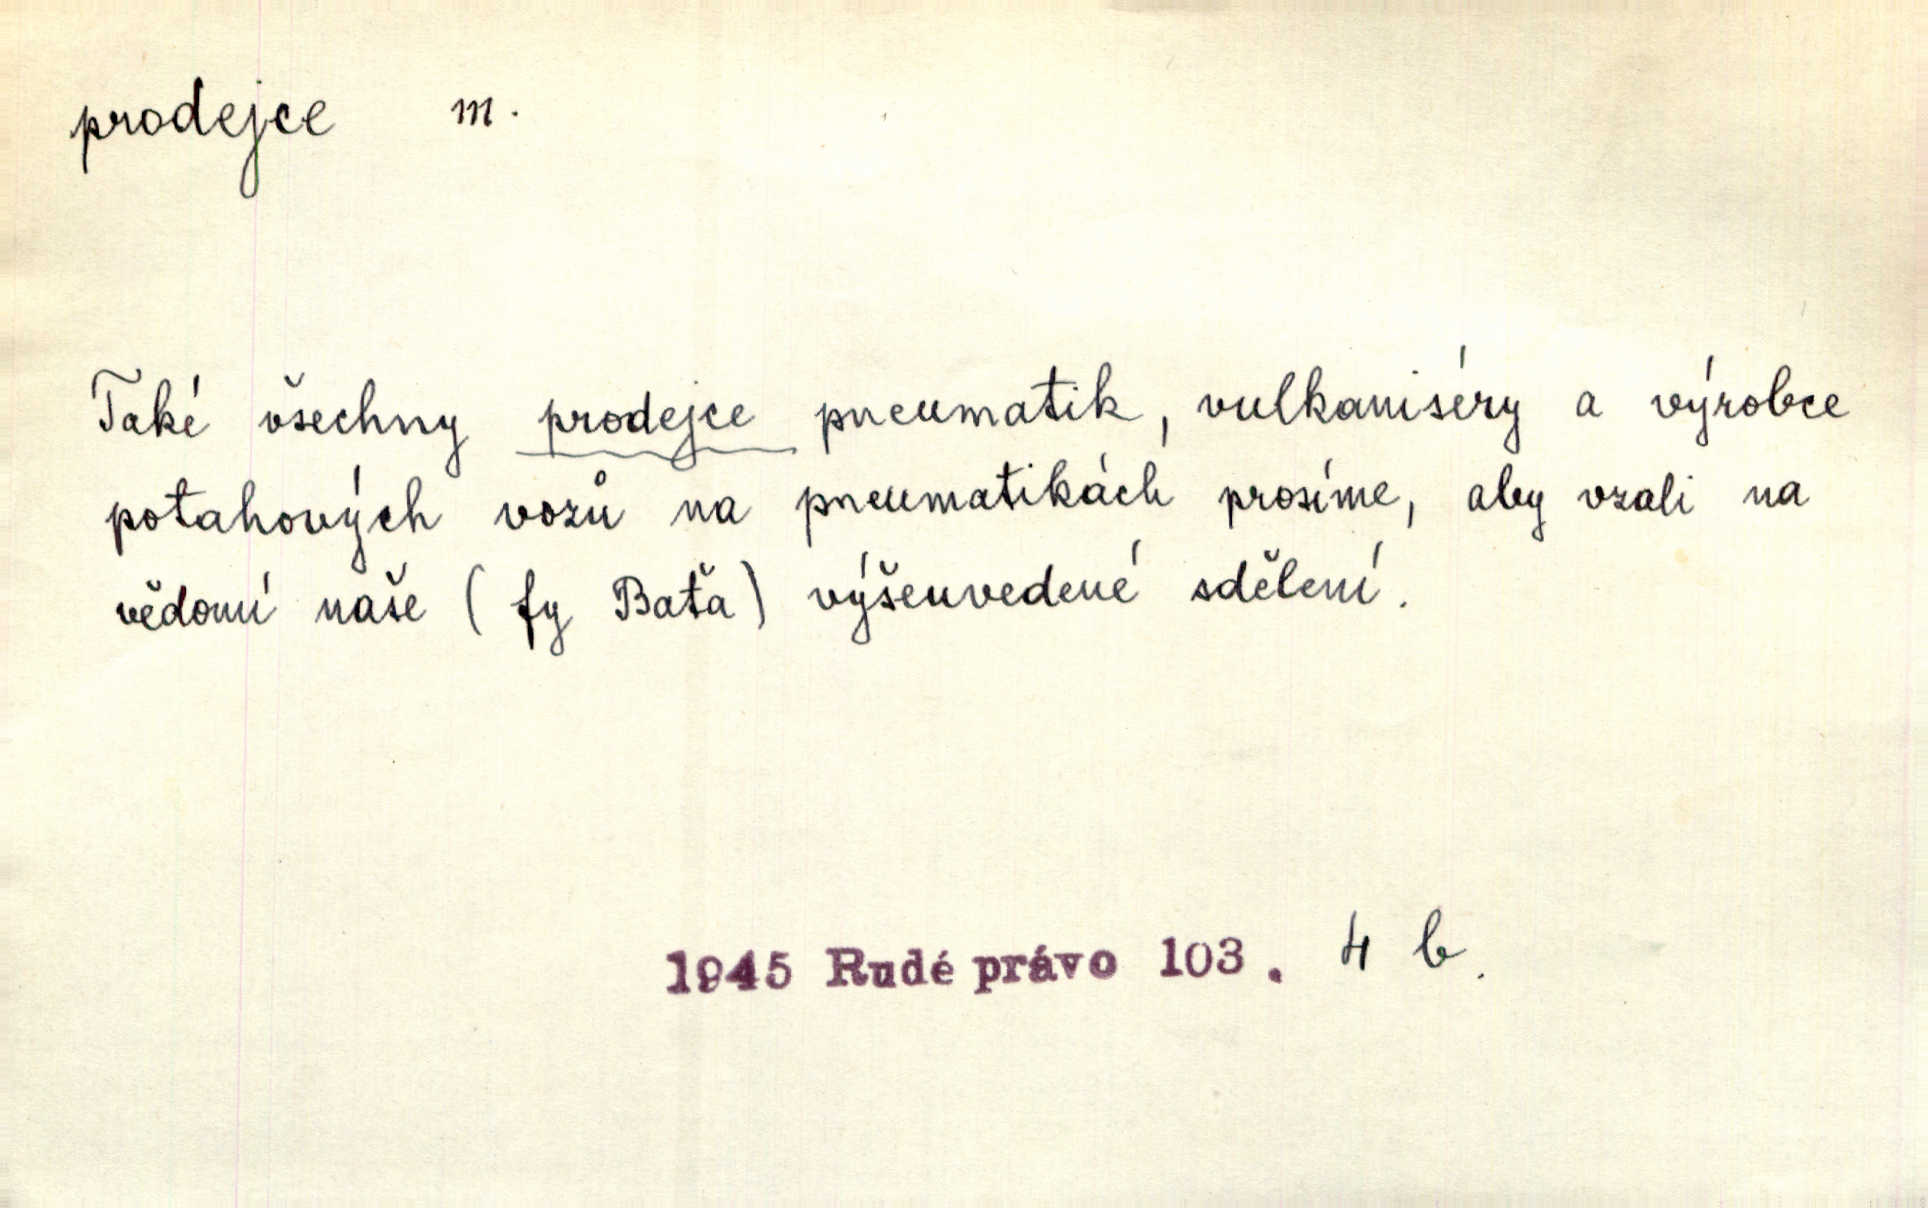 prodejce m.
Také všechny prodejce pneumatik, vulkaniséry a výrobce
potahových vozů na pneumatikách prosíme, aby vzali na
vědomí naše (fy Baťa) výšeuvedené sdělení.
1945 Rudé právo 103. 4 b.